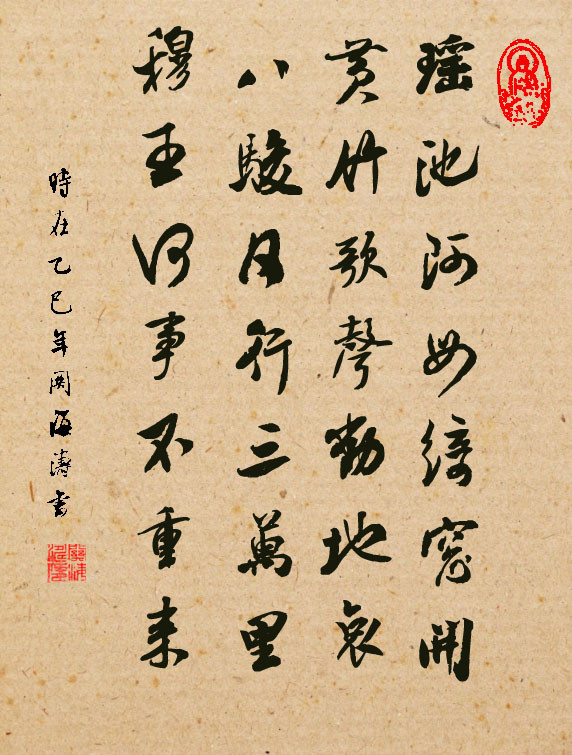 瑶池阿母綺窗開
黄竹歌聲動地哀
八駿日行三萬里
穆王何事不重来
時在乙巳年関海濤書